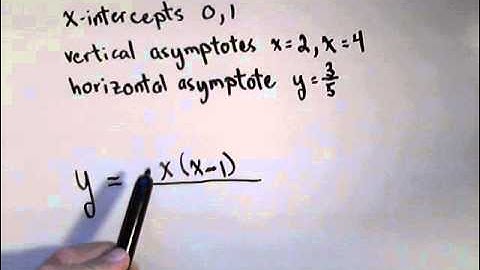 x-intercepts 0, 1
vertical asymptotes x = 2, x = 4
horizontal asymptote y = 3/5
y = x(x-1)